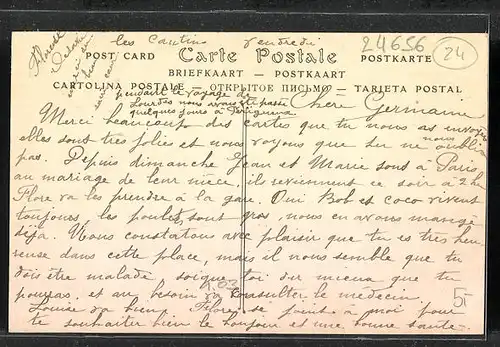 les Cautin Vendredi
24656
24
POST CARD Carte Postale POSTKARTE
BRIEFKAART — POSTKAART
CARTOLINA POSTALE — ОТКРЫТОЕ ПИСЬМО — TARJETA POSTAL
Chère Germaine
pendant le voyage de
Lourdes nous avons été passé
quelques jours à
Merci beaucoup des cartes que tu nous as envoyé
elles sont très jolies et nous voyons que tu ne nous oublie
pas. Depuis dimanche Jean et Marie sont à Paris
au mariage de leur nièce, ils reviennent ce soir à 2h
Flore va les prendre à la gare. Oui Bob et coco vivent
toujours, les poulets sont gros, nous en avons mangé
déjà. Nous constatons avec plaisir que tu es très heu-
reuse dans cette place, mais il nous semble que tu
dois être malade, soigne toi du mieux que tu
pourras et au besoin va consulter le médecin.
Louise va bien, Flore se joint à moi pour
te souhaiter bien le bonjour et une bonne santé.
5F